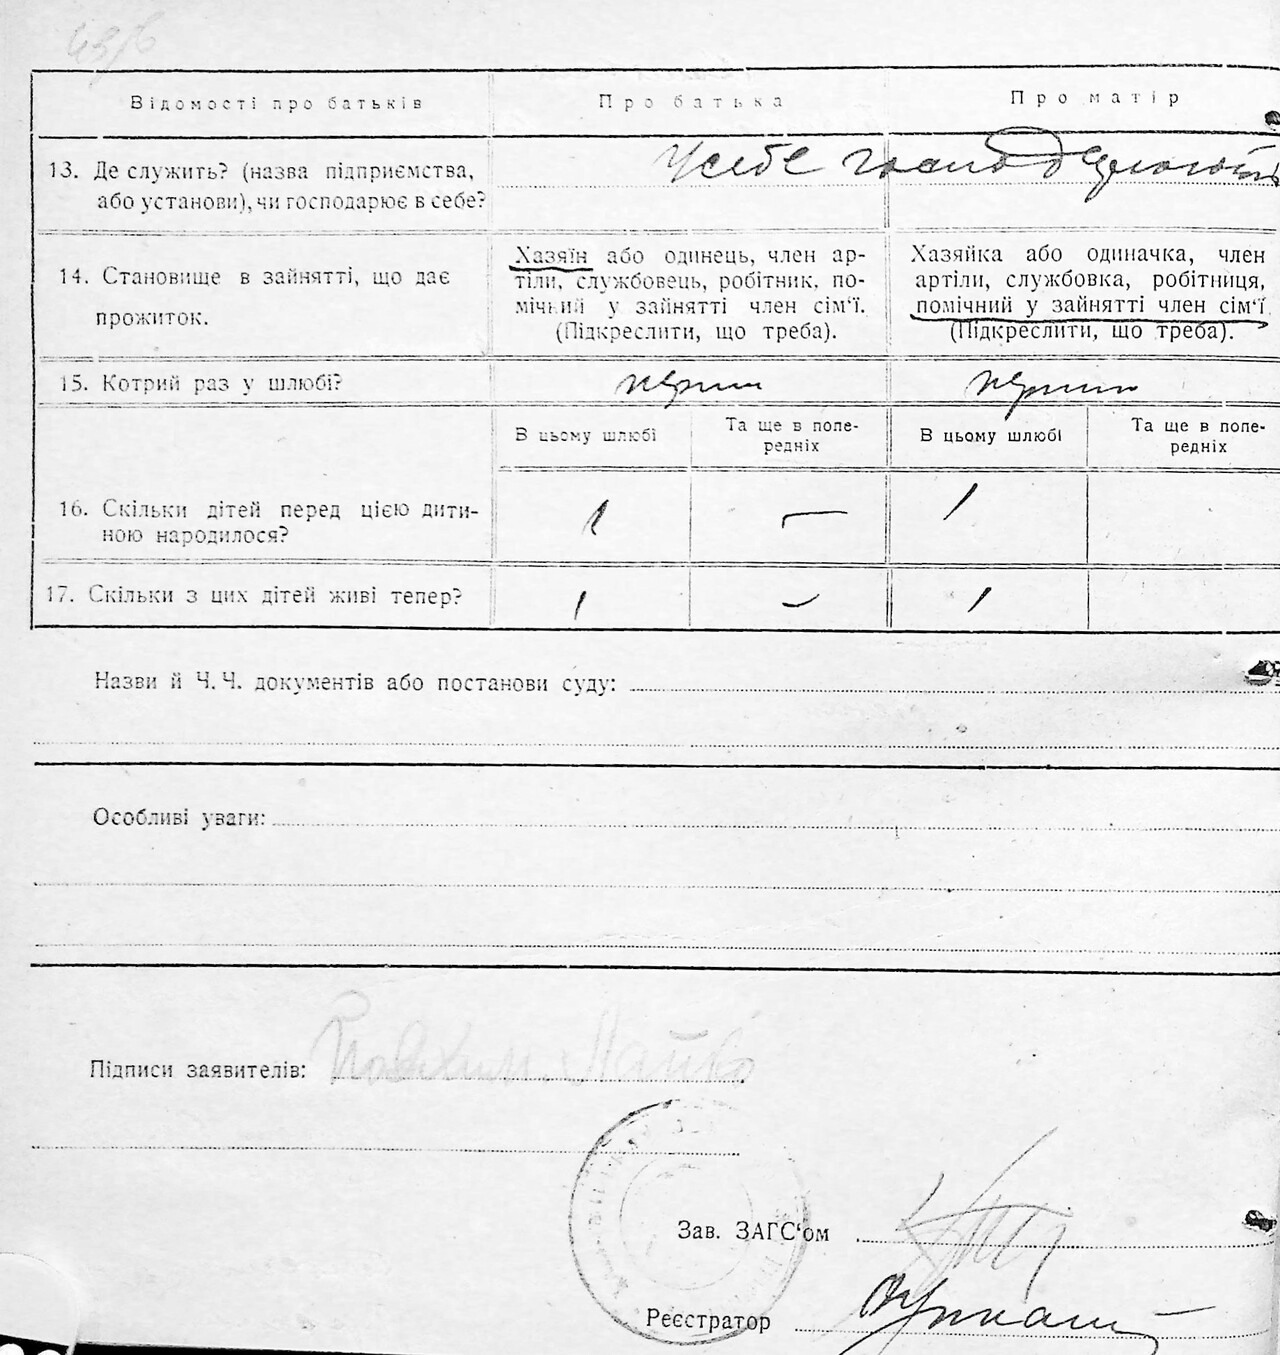 Відомості про батьків
Про батька
Про матір
13. Де служить? (назва підприємства,
або установи), чи господарює в себе?
У себе господарюють
14. Становище в зайнятті, що дає
прожиток.
Хазяїн або одинець, член ар-
тіли, службовець, робітник, по-
мічний у зайнятті член сім'ї.
(Підкреслити, що треба).
Хазяйка або одиначка, член
артіли, службовка, робітниця,
помічний у зайнятті член сім'ї.
(Підкреслити, що треба).
15. Котрий раз у шлюбі?
В цьому шлюбі
Та ще в попе-
редніх
В цьому шлюбі
Та ще в попе-
редніх
16. Скільки дітей перед цією дити-
ною народилося?
1 — 1
17. Скільки з цих дітей живі тепер?
1 — 1
Назви й Ч. Ч. документів або постанови суду:
Особливі уваги:
Підписи заявителів:
Зав. ЗАГС'ом
Реєстратор